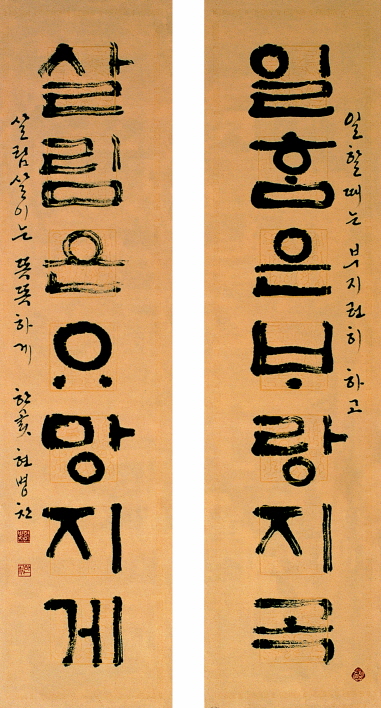 일할 때는 부지런히 하고
일홈은부랑지곡
살림은ᄋᆢ망지게
살림살이는 똑똑하게 한곬 현병찬